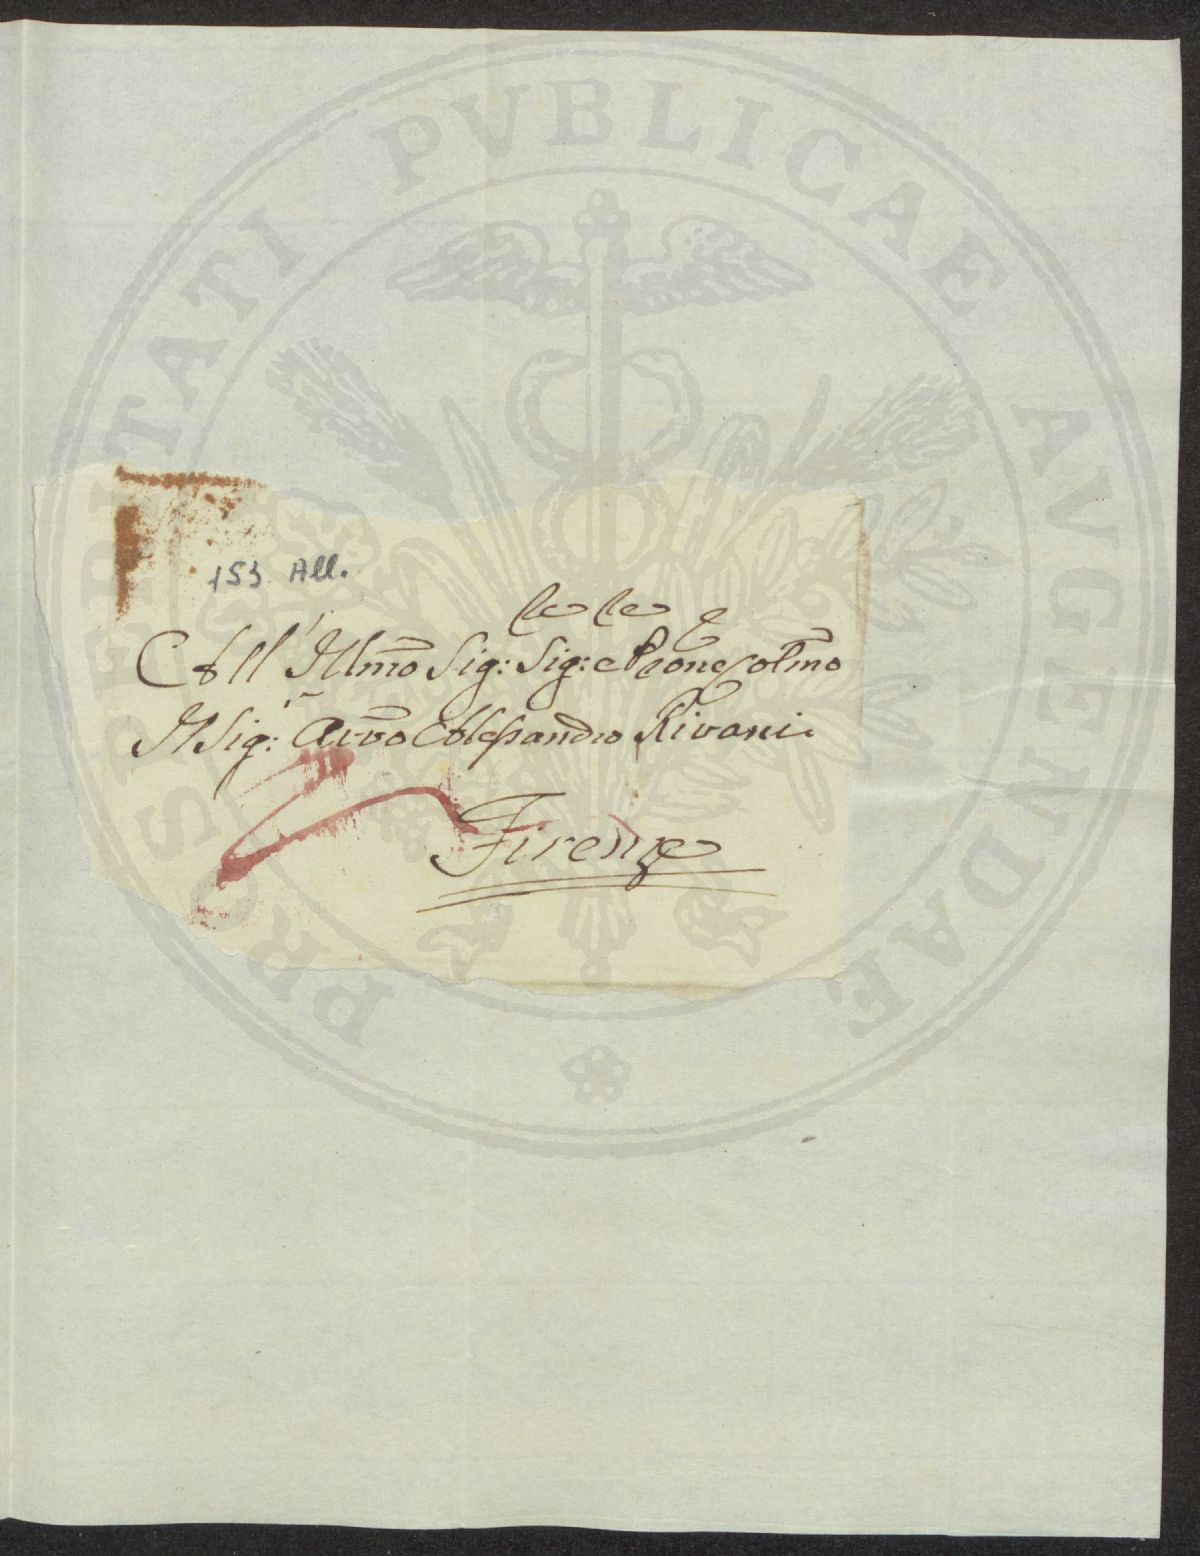 PROSPERITATI PVBLICAE AVGENDAE
153 All.
All' Illmo Sig: Sig: e Prone Colmo
Il Sig:r Avvo Alessandro Rivani
Firenze